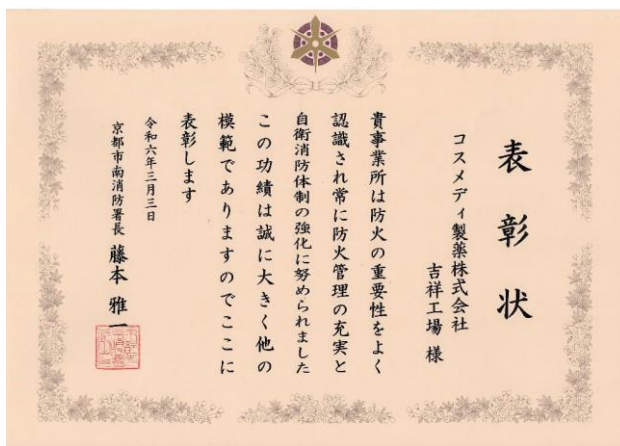 表彰状
コスメディ製薬株式会社
吉祥工場 様
貴事業所は防火の重要性をよく
認識され常に防火管理の充実と
自衛消防体制の強化に努められました
この功績は誠に大きく他の
模範でありますのでここに
表彰します
令和六年三月三日
京都市南消防署長 藤本 雅一